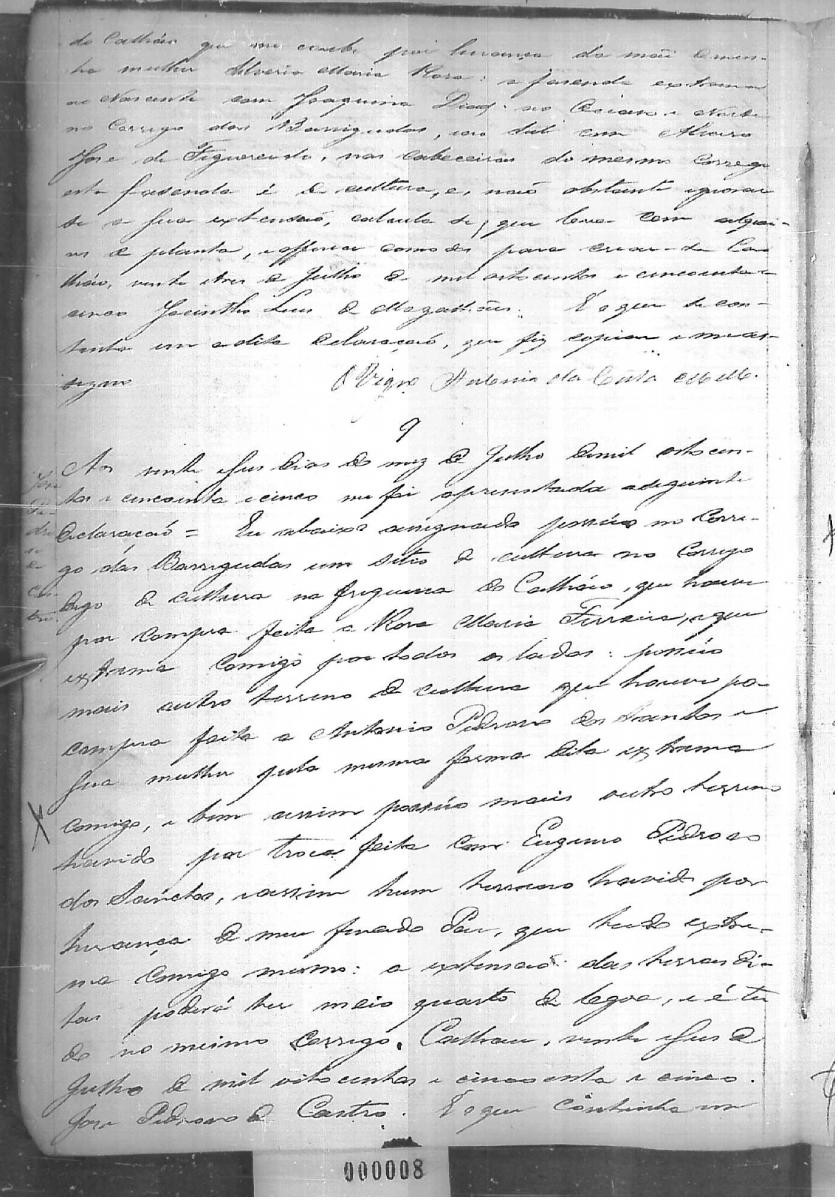 do Calháo que me coube por herança da mãi de mi-
nha mulher Silveria Maria Rosa: a fasenda extrema
ao Nascente com Joaquim Dias: ao Occaso e Norte
no Corrego das Barrigudas, ao Sul com Alvaro
José de Figueiredo, nas cabeceiras do mesmo Corrego
esta fasenda é de cultura, e, naó obstante ignorar
se a sua extensaó, calcula se, que leva cem alquei-
res de planta, e offerece comodos para crear. Ca-
lháo, vinte e tres de Julho de mil oito centos e cincoenta e
cinco Jacintho Luis de Magalhães. E o que se con-
tinha em a dita declaraçaó, que fiz copiar e me as-
signo O Vigrº Antonio da Costa
9
Aos vinte e seis dias do mez de Julho de mil oito cen-
tos e cincoenta e cinco me foi apresentada a seguinte
declaraçaó = Eu abaixo assignado possúo no Corre-
go das Barrigudas um sitio de cultura no Corrego
digo de cultura na freguesia do Calháo, que houve
por compra feita a Rosa Maria Ferreira, e que
extrema comigo por todos os lados: possúo
mais outro terreno de cultura que houve por
compra feita a Antonio Pedroso dos Santos e
sua mulher pela mesma forma dita extrema
comigo, e bem assim possúo mais outro terreno
havido por troca feita com Eugenio Pedroso
dos Sanctos, e assim hum terreno havido por
herança de meu finado Pai, que tudo extre-
ma comigo mesmo: a extensaó das terras di-
tas poderá ter meio quarto de legoa, e é tu
do no mesmo Corrego. Calhau, vinte e seis de
Julho de mil oito centos e cincoenta e cinco.
José Pedroso de Castro. E o que continha em
José
Pe-
dro
so
de
Cas-
tro.
000008